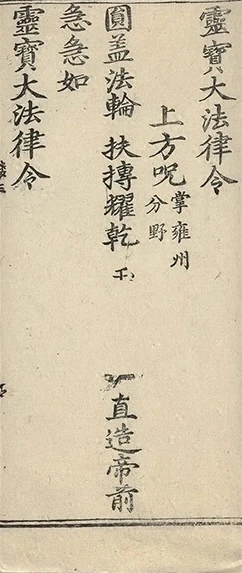 靈寶大法律令
上方呪 掌雍州分野
圓盖法輪 扶摶耀乾
直造帝前
急急如
靈寶大法律令